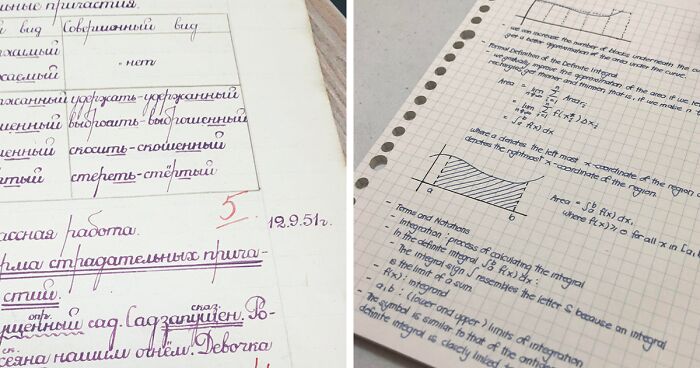 льные причастия.
й вид Совершенный вид
жимый
- нет
жаемый
жанный удержать-удержанный
шенный выбросить-выброшенный
енный скосить-скошенный
тый стереть-стёртый
5 12.9.51г.
ассная работа.
рма страдательных прича-
стий.
опр. сказ.
ущенный сад. Сад запущен. Ро-
сеяна нашим огнём. Девочка
- we can increase the number of blocks underneath the
give a better approximation of the area under the curve.
- Formal Definition of the Definite Integral
- we gradually improve the approximation of the area if we
rectangles get thinner and thinner, that is, if we make n
Area = lim Σ Area i
n→∞ i=1
= lim Σ f(xi*) Δxi
n→∞ i=1
= ∫ₐᵇ f(x) dx
where a denotes the left most x-coordinate of the region
denotes the rightmost x-coordinate of the region.
a b
Area = ∫ₐᵇ f(x) dx,
where f(x) ≥ 0 for all x in [a,
- Terms and Notations
- Integration: process of calculating the integral
- In the definite integral ∫ₐᵇ f(x) dx:
- The integral sign ∫ resembles the letter S because an integral
is the limit of a sum.
- f(x): integrand
- a, b: (lower and upper) limits of integration
- The symbol is similar to that of the
definite integral is closely linked